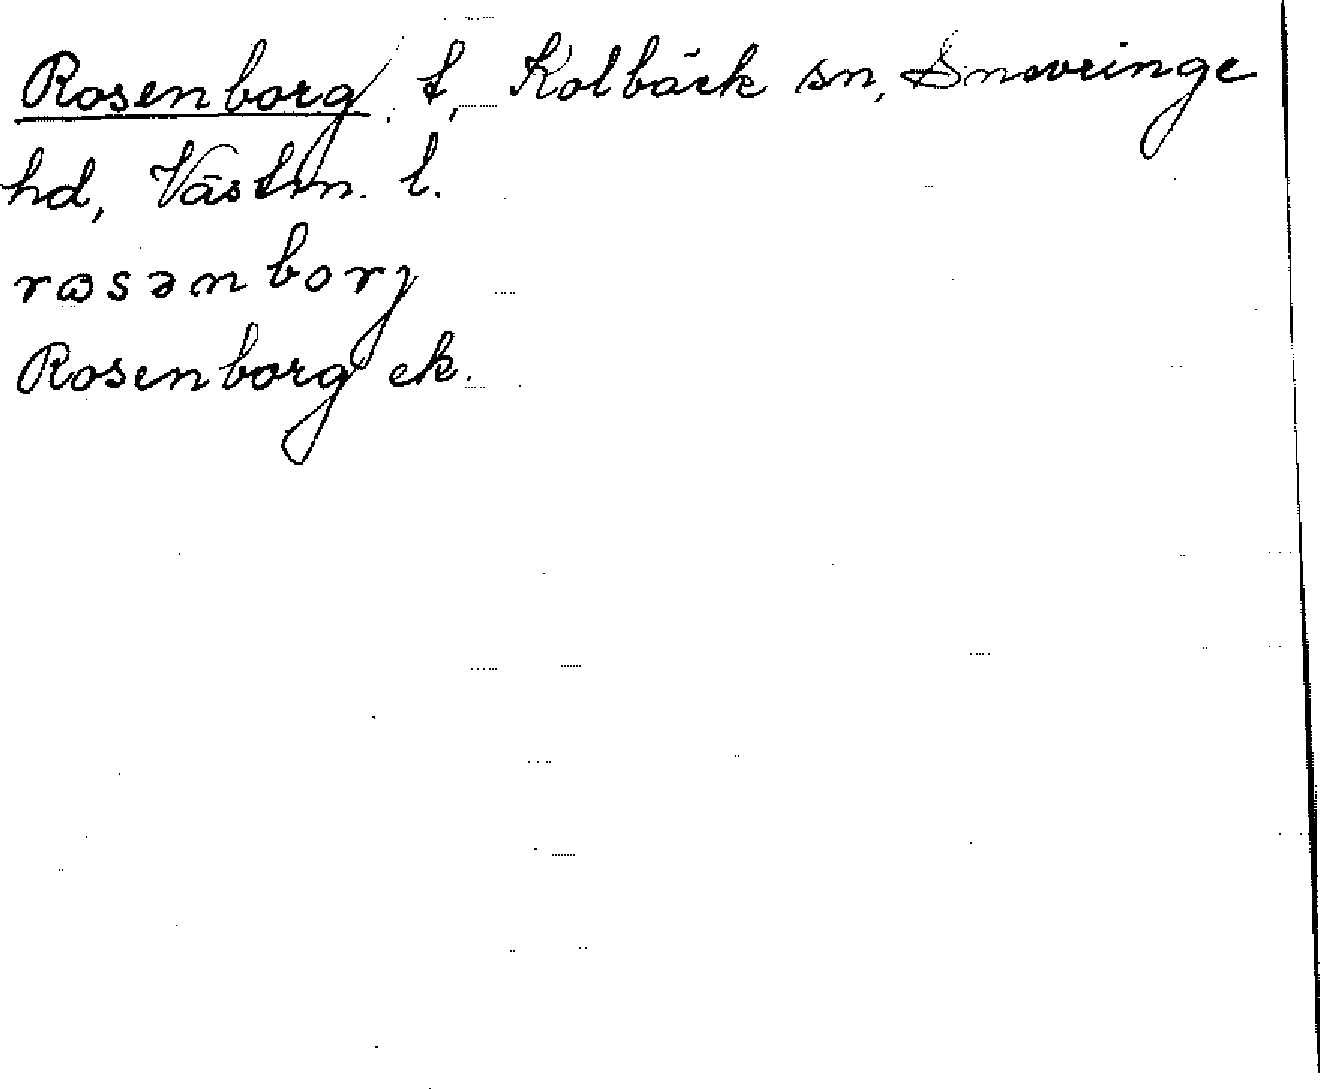 Rosenborg, t, Kolbäck sn, Snevringe
hd, Västm. l.
rosənborj
Rosenborg ek.